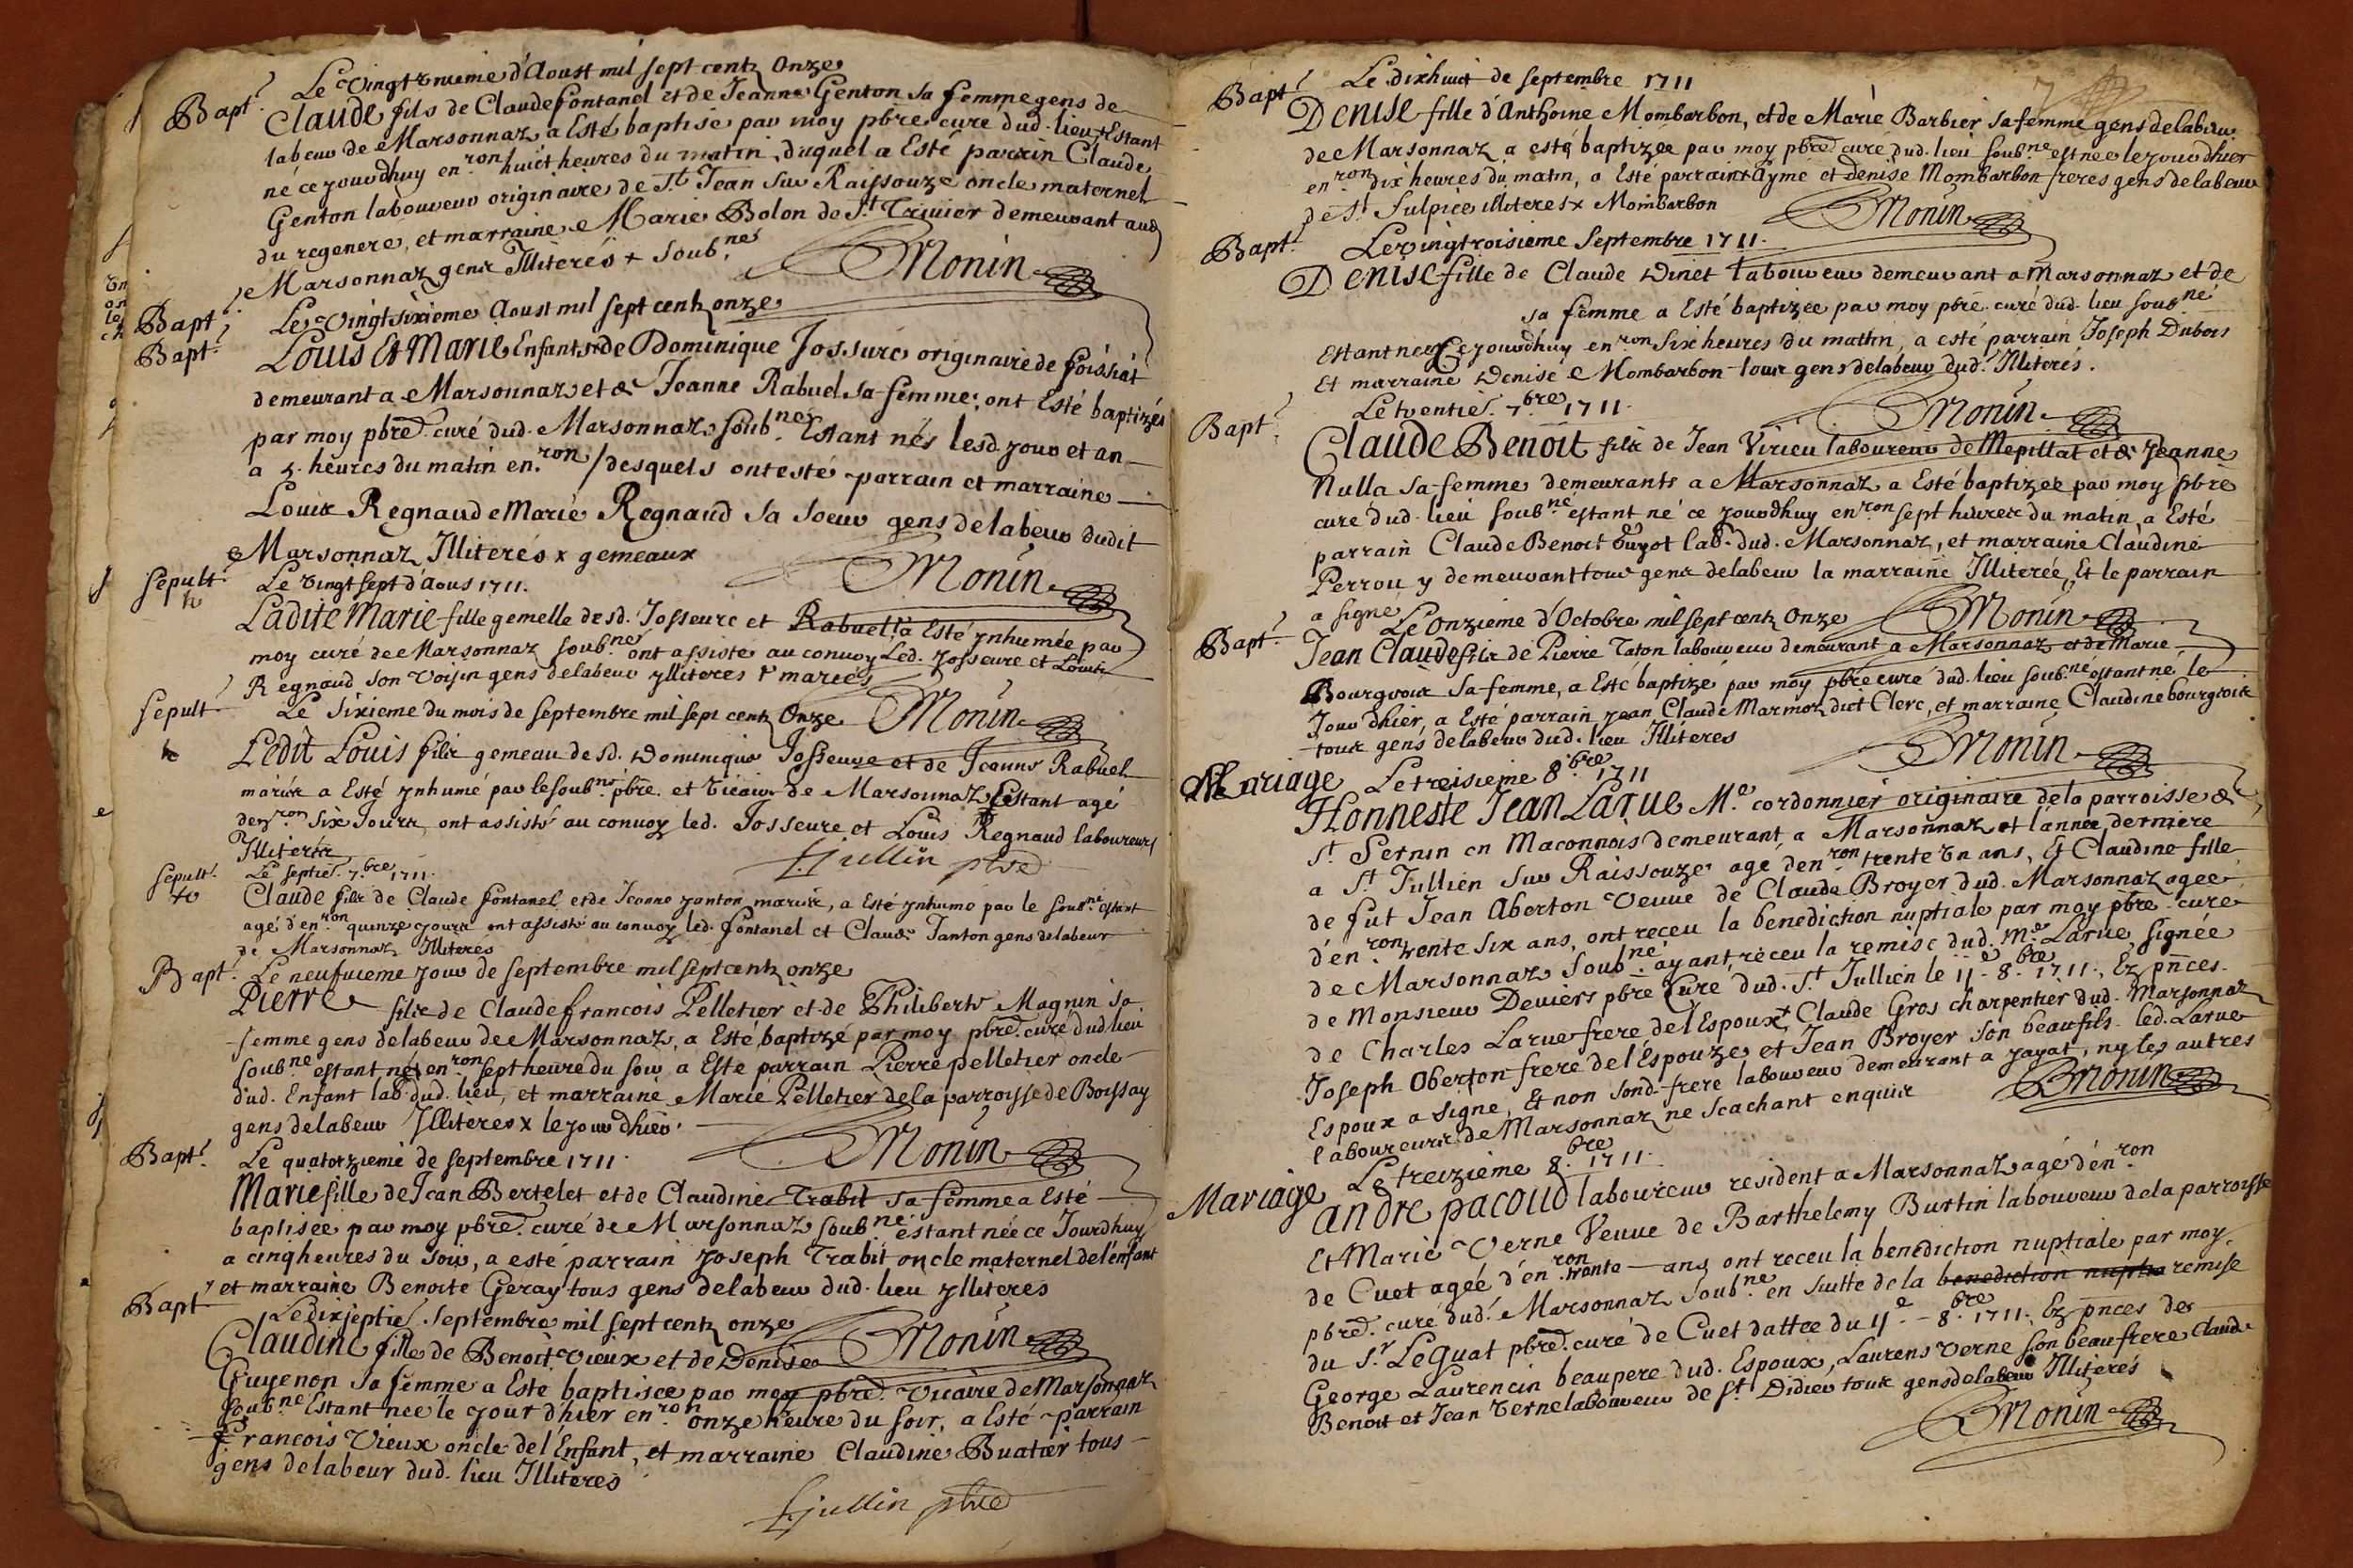 Bapt. Le Vingtunieme d'Aoust mil sept centz Onze
Claude fils de Claude fontanel et de Jeanne Genton sa femme gens de
labeur de Marsonnaz a Esté baptisé par moy pbre curé dud. lieu Estant
né ce jourdhuy en.ron huict heures du matin, duquel a Esté parrin Claude
Genton laboureur originaire de St Jean sur Raissouze oncle maternel
du regeneré, et marraine Marie Bolon de St Trivier demeurant aud
Marsonnaz gens Illiterés + soub.né
Monin
Bapt. Le Vingtsixieme Aoust mil sept centz onze
Bapt. Louis Et Marie Enfants de Dominique Jossure originaire de foissiat
demeurant a Marsonnaz et de Jeanne Rabuel sa femme, ont Esté baptizés
par moy pbre. curé dud. Marsonnaz soub.né Estant nés lesd. jour et an
a 4. heures du matin en.ron / desquels ont esté parrain et marraine
Louis Regnaud e Marie Regnaud sa soeur gens de labeur dudit
Marsonnaz Illiterés x gemeaux
Monin
sepult. Le Vingt sept d'Aous 1711.
Ladite Marie fille gemelle desd. Josseure et Rabuel a Esté ynhumée par
moy curé de Marsonnaz soub.né ont assisté au convoy Led. Josseure et Louis
Regnaud son Voisin gens de labeur yllitères + mariés
Monin
sepult. Le sixieme du mois de septembre mil sept centz Onze
Ledit Louis fils gemeau desd. Dominique Josseure et de Jeanne Rabuel
mariés a Esté ynhumé par le soub.né pbre. et vicaire de Marsonnaz Estant agé
den.ron six Jours, ont assisté au convoy led. Josseure et Louis Regnaud laboureurs
Illiteres
Jullin pbre
sepult. Le septie. 7.bre 1711.
Claude fils de Claude fontanel et de Jeanne janton mariés, a Esté ynhumé par le soub.né Estant
agé d'en.ron quinze jours ont assisté au convoy led. fontanel et Claude Janton gens de labeur
de Marsonnaz Illiteres
Bapt. Le neufvieme jour de septembre mil sept centz onze
Pierre fils de Claude francois Pelletier et de Philiberte Magnin sa
femme gens de labeur de Marsonnaz, a Esté baptizé par moy pbre. curé dud lieu
soub.né estant né en.ron sept heure du soir a Esté parrain Pierre pelletier oncle
dud. Enfant lab. dud. lieu, et marraine Marie Pelletier de la parroisse de Boissay
gens de labeur Illiteres x le jour dhier.
Monin
Bapt. Le quatorzieme de septembre 1711.
Marie fille de Jean Bertelet et de Claudine Trabit sa femme a Esté
baptisée par moy pbre. curé de Marsonnaz soub.né estant née ce Jourdhuy
a cinq heures du soir, a esté parrain Joseph Trabit oncle maternel de l'enfant
et marraine Benoite Geray tous gens de labeur dud. lieu ylliteres
Monin
Bapt. Le dixseptie. Septembre mil sept centz onze
Claudine fille de Benoit Vieux et de Denise
Guyenon sa femme a Esté baptisée par moy pbre. Vicaire de Marsonnaz
soub.né Estant née le jour d'hier en.ron onze heure du soir, a Esté parrain
francois Vieux oncle de l'Enfant, et marraine Claudine Buatier tous
gens de labeur dud. lieu Illiteres
Jullin pbre
7
Bapt. Le dixhuit de septembre 1711
Denise fille d'Anthoine Mombarbon, et de Marie Barbier sa femme gens de labeur
de Marsonnaz a esté baptizée par moy pbre. curé dud. lieu soub.né est née le jour dhier
en.ron dix heures du matin, a Esté parrain + Aymé et Denise Mombarbon freres gens de labeur
de St Sulpice illiteres x Mombarbon
Monin
Bapt. Le vingtroisieme Septembre 1711.
Denise fille de Claude Dinet laboureur demeurant a Marsonnaz et de
sa femme a Esté baptizée par moy pbre. curé dud. lieu soub.né
Estant née Ce jourdhuy en.ron six heures du mattin, a esté parrain Joseph Dubois
Et marraine Denise Mombarbon tous gens de labeur dud. Illiterés.
Monin
Bapt. Le trentie. 7.bre 1711.
Claude Benoit fils de Jean Virieu laboureur de Mepillat et de Jeanne
Nulla sa femme demeurants a Marsonnaz a Esté baptizee par moy pbre
curé dud. lieu soub.né estant né ce jourdhuy en.ron sept heures du matin, a Esté
parrain Claude Benoit Guyot lab. dud. Marsonnaz, et marraine Claudine
Perrou y demeurant tous gens de labeur la marraine Illiterée, Et le parrain
a signé
Monin
Bapt. Le Onzieme d'Octobre mil sept centz Onze
Jean Claude fils de Pierre Taton laboureur demeurant a Marsonnaz et de Marie
Bourgeois sa femme, a Esté baptizé par moy pbre curé dud. lieu soub.né estant né le
Jour dhier, a Esté parrain Jean Claude Marmoz dict Clerc, et marraine Claudine bourgeois
tous gens de labeur dud. lieu Illiteres
Monin
Mariage Le treisieme 8.bre 1711
Honneste Jean Larue M.e cordonnier originaire de la parroisse de
St Sernin en Maconnois demeurant a Marsonnaz et l'année derniere
a St Jullien sur Raissouze agé d'en.ron trente un ans, Et Claudine fille
de fut Jean Oberton Veuve de Claude Broyer dud. Marsonnaz agee
d'en.ron trente six ans, ont receu la benediction nuptiale par moy pbre curé
de Marsonnaz soub.né ayant receu la remise dud. M.e Larue, signée
de Monsieur Deviers pbre Curé dud. St Jullien le 11.e 8.bre 1711., Ez pnces.
de Charles Larue frere de l'Espoux + Claude Gros charpentier dud. Marsonnaz
Joseph Oberton frere de l'Espouze et Jean Broyer son beaufils. led. Larue
Espoux a signé, Et non sond. frere laboureur demeurant a jayat, ny les autres
laboureurs de Marsonnaz ne scachant enquis
Monin
Mariage Le treizieme 8.bre 1711.
André pacoud laboureur resident a Marsonnaz agé d'en.ron
Et Marie Verne Veuve de Barthelemy Burtin laboureur de la parroisse
de Cuet ageé d'en.ron trente ans ont receu la benediction nuptiale par moy
pbre. curé dud. Marsonnaz soub.né en suitte de la benediction nuptia remise
du S.r LeGuat pbre. curé de Cuet dattée du 11.e 8.bre 1711. Ez pnces de
George Laurencin beaupere dud. Espoux, Laurens Verne son beaufrere Claude
Benoit et Jean Verne laboureur de St Didier tous gens de labeur Illiterés
Monin